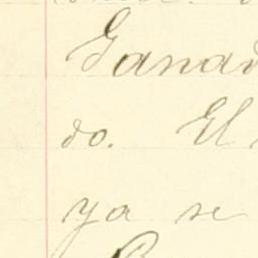 Ganad
do. El
ya se